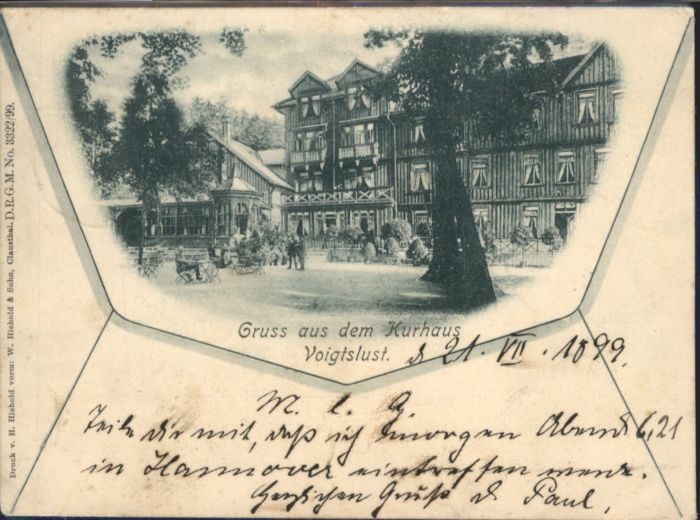 Druck v. H. Hiehold vorm: W. Hiehold & Sohn, Clausthal. D.R.G.M. No. 3322/99.
Gruss aus dem Kurhaus
Voigtslust.
d 21. VII. 1899.
M. l. G.
Teile dir mit, daß ich morgen Abend 6,21
in Hannover eintreffen werde.
Herzlichen Gruß d Paul.